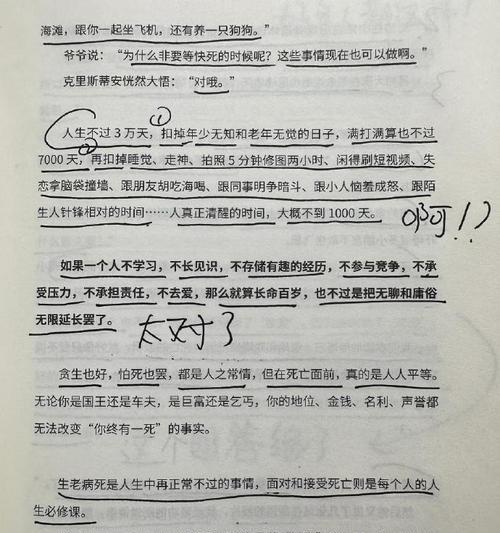 海滩，跟你一起坐飞机，还有养一只狗狗。”
爷爷说：“为什么非要等快死的时候呢？这些事情现在也可以做啊。”
克里斯蒂安恍然大悟：“对哦。”
①
人生不过 3 万天，扣掉年少无知和老年无觉的日子，满打满算也不过
②
7000 天，再扣掉睡觉、走神、拍照 5 分钟修图两小时、闲得刷短视频、失
恋拿脑袋撞墙、跟朋友胡吃海喝、跟同事明争暗斗、跟小人恼羞成怒、跟陌
生人针锋相对的时间……人真正清醒的时间，大概不到 1000 天。
啊？！！
如果一个人不学习，不长见识，不存储有趣的经历，不参与竞争，不承
受压力，不承担责任，不去爱，那么就算长命百岁，也不过是把无聊和庸俗
无限延长罢了。
太对了
贪生也好，怕死也罢，都是人之常情，但在死亡面前，真的是人人平等。
无论你是国王还是车夫，是巨富还是乞丐，你的地位、金钱、名利、声誉都
无法改变“你终有一死”的事实。
生老病死是人生中再正常不过的事情，面对和接受死亡则是每个人的人
生必修课。